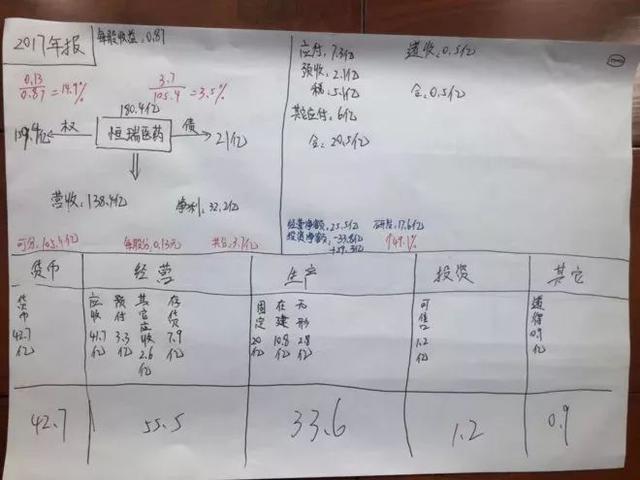 2017年报
每股收益:0.87
0.13
0.87
=14.9%
3.7
105.4
=3.5%
180.4亿
159.4亿
权
恒瑞医药
债
21亿
营收:138.4亿
净利:32.2亿
可分:105.4亿
每股分:0.13元
共分:3.7亿
应付:7.3亿
预收:2.1亿
税:5.1亿
其它应付:6亿
合:20.5亿
递收:0.5亿
合:0.5亿
经营净额:25.5亿
投资净额:-33.8亿
研发:17.6亿
↑49.1%
货币
经营
生产
投资
其它
货币
42.7亿
应收
41.7亿
预付
3.3亿
其它应收
2.6亿
存货
7.9亿
固定
20亿
在建
10.8亿
无形
2.8亿
可售
1.2亿
递得
0.9亿
42.7
55.5
33.6
1.2
0.9